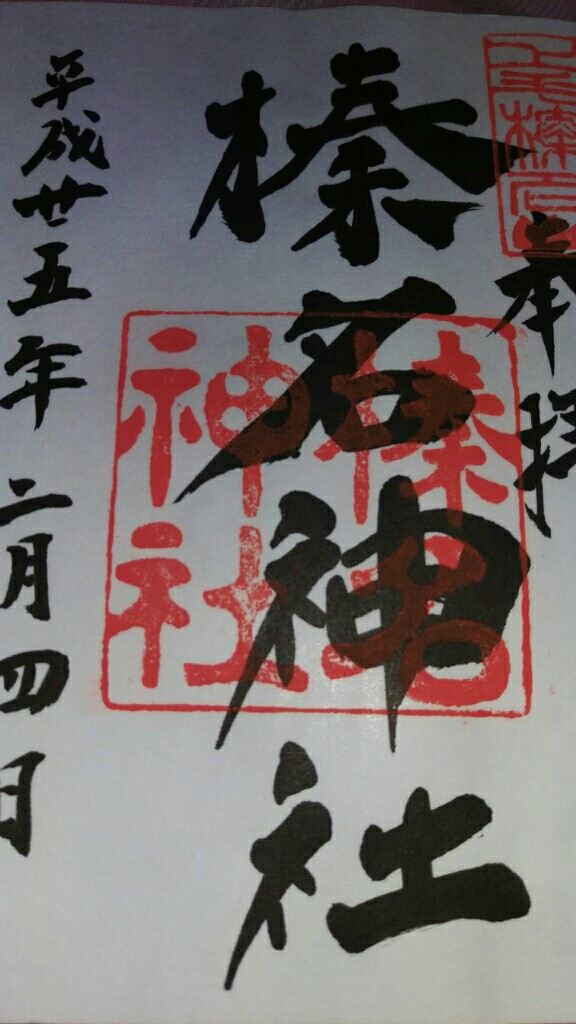 奉拝
上毛榛名
榛名神社
榛名神社
平成廿五年二月四日